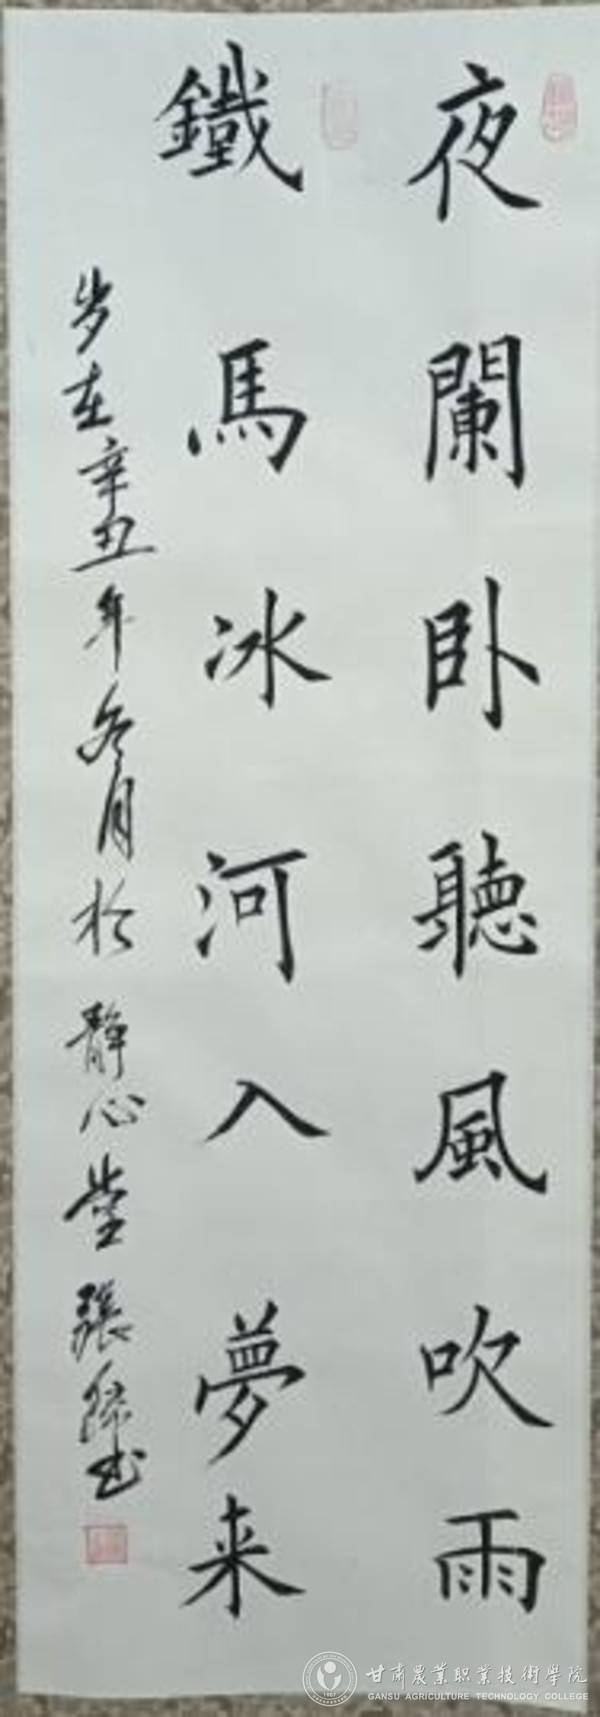 夜闌卧聽風吹雨
鐵馬冰河入夢来
岁在辛丑年冬月於靜心堂張書
甘肃農業职業技術學院
GANSU AGRICULTURE TECHNOLOGY COLLEGE
1907